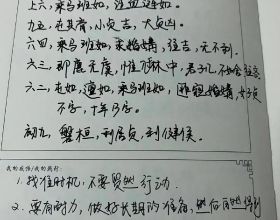 上六，乘马班如，泣血涟如。
九五，屯其膏，小贞吉，大贞凶。
六四，乘马班如，求婚媾，往吉，无不利。
六三，即鹿无虞，惟入林中，君子几不如舍，往吝
六二，屯如，邅如，乘马班如，匪寇婚媾，女子贞
不字，十年乃字。
初九，磐桓，利居贞，利建侯。
我的我得/我的践行：
1. 找准时机，不要贸然行动。
2. 要有耐力，做好长期的准备，然后自然得到